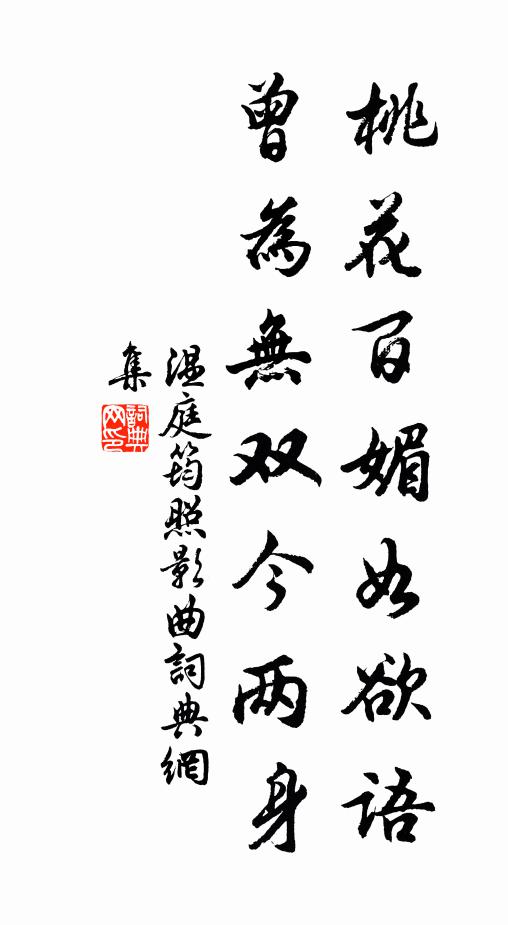 桃花百媚如欲語
曾為無双今两身
温庭筠照影曲詞典網
集
詞典
网印